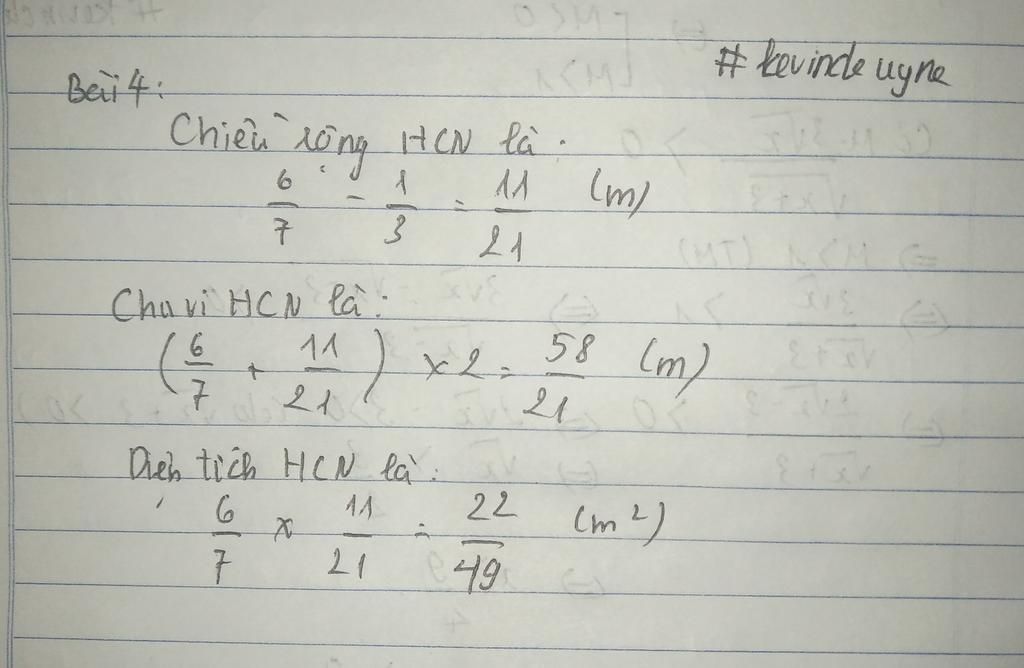 # kevindeuyne
Bài 4:
Chiều rộng HCN là:
6/7 - 1/3 = 11/21 (m)
Chu vi HCN là:
(6/7 + 11/21) x 2 = 58/21 (m)
Diện tích HCN là:
6/7 x 11/21 = 22/49 (m²)